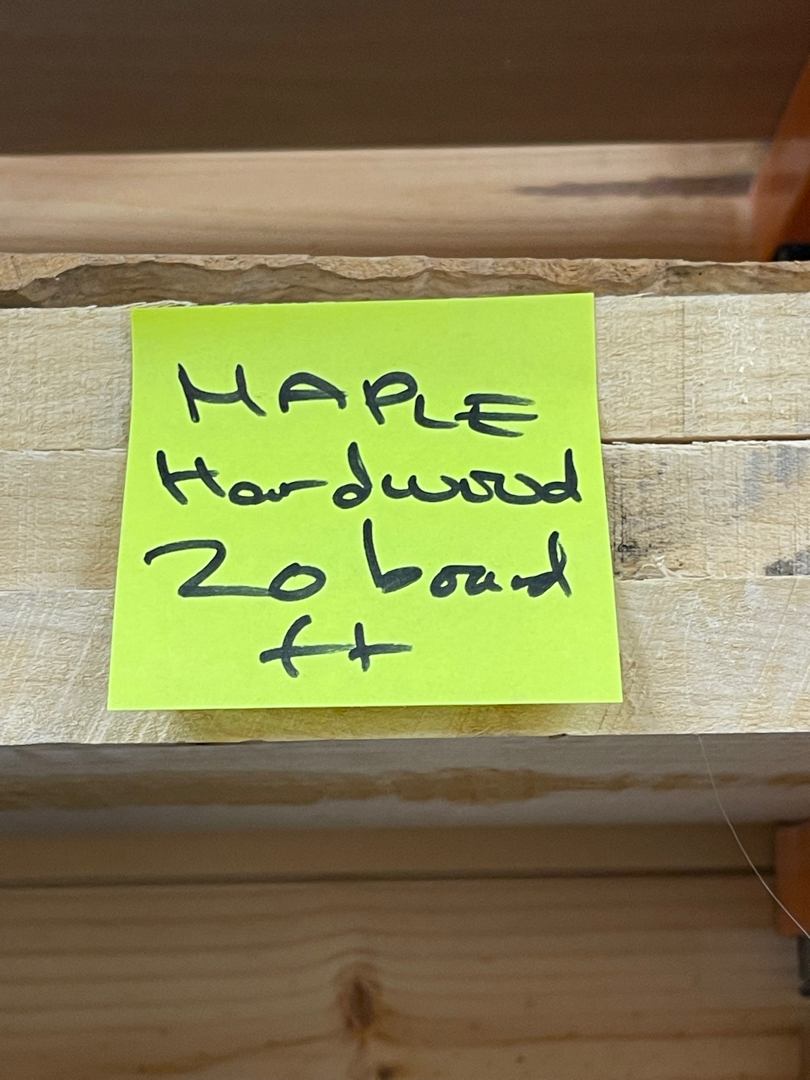 MAPLE
Hardwood
20 board
ft